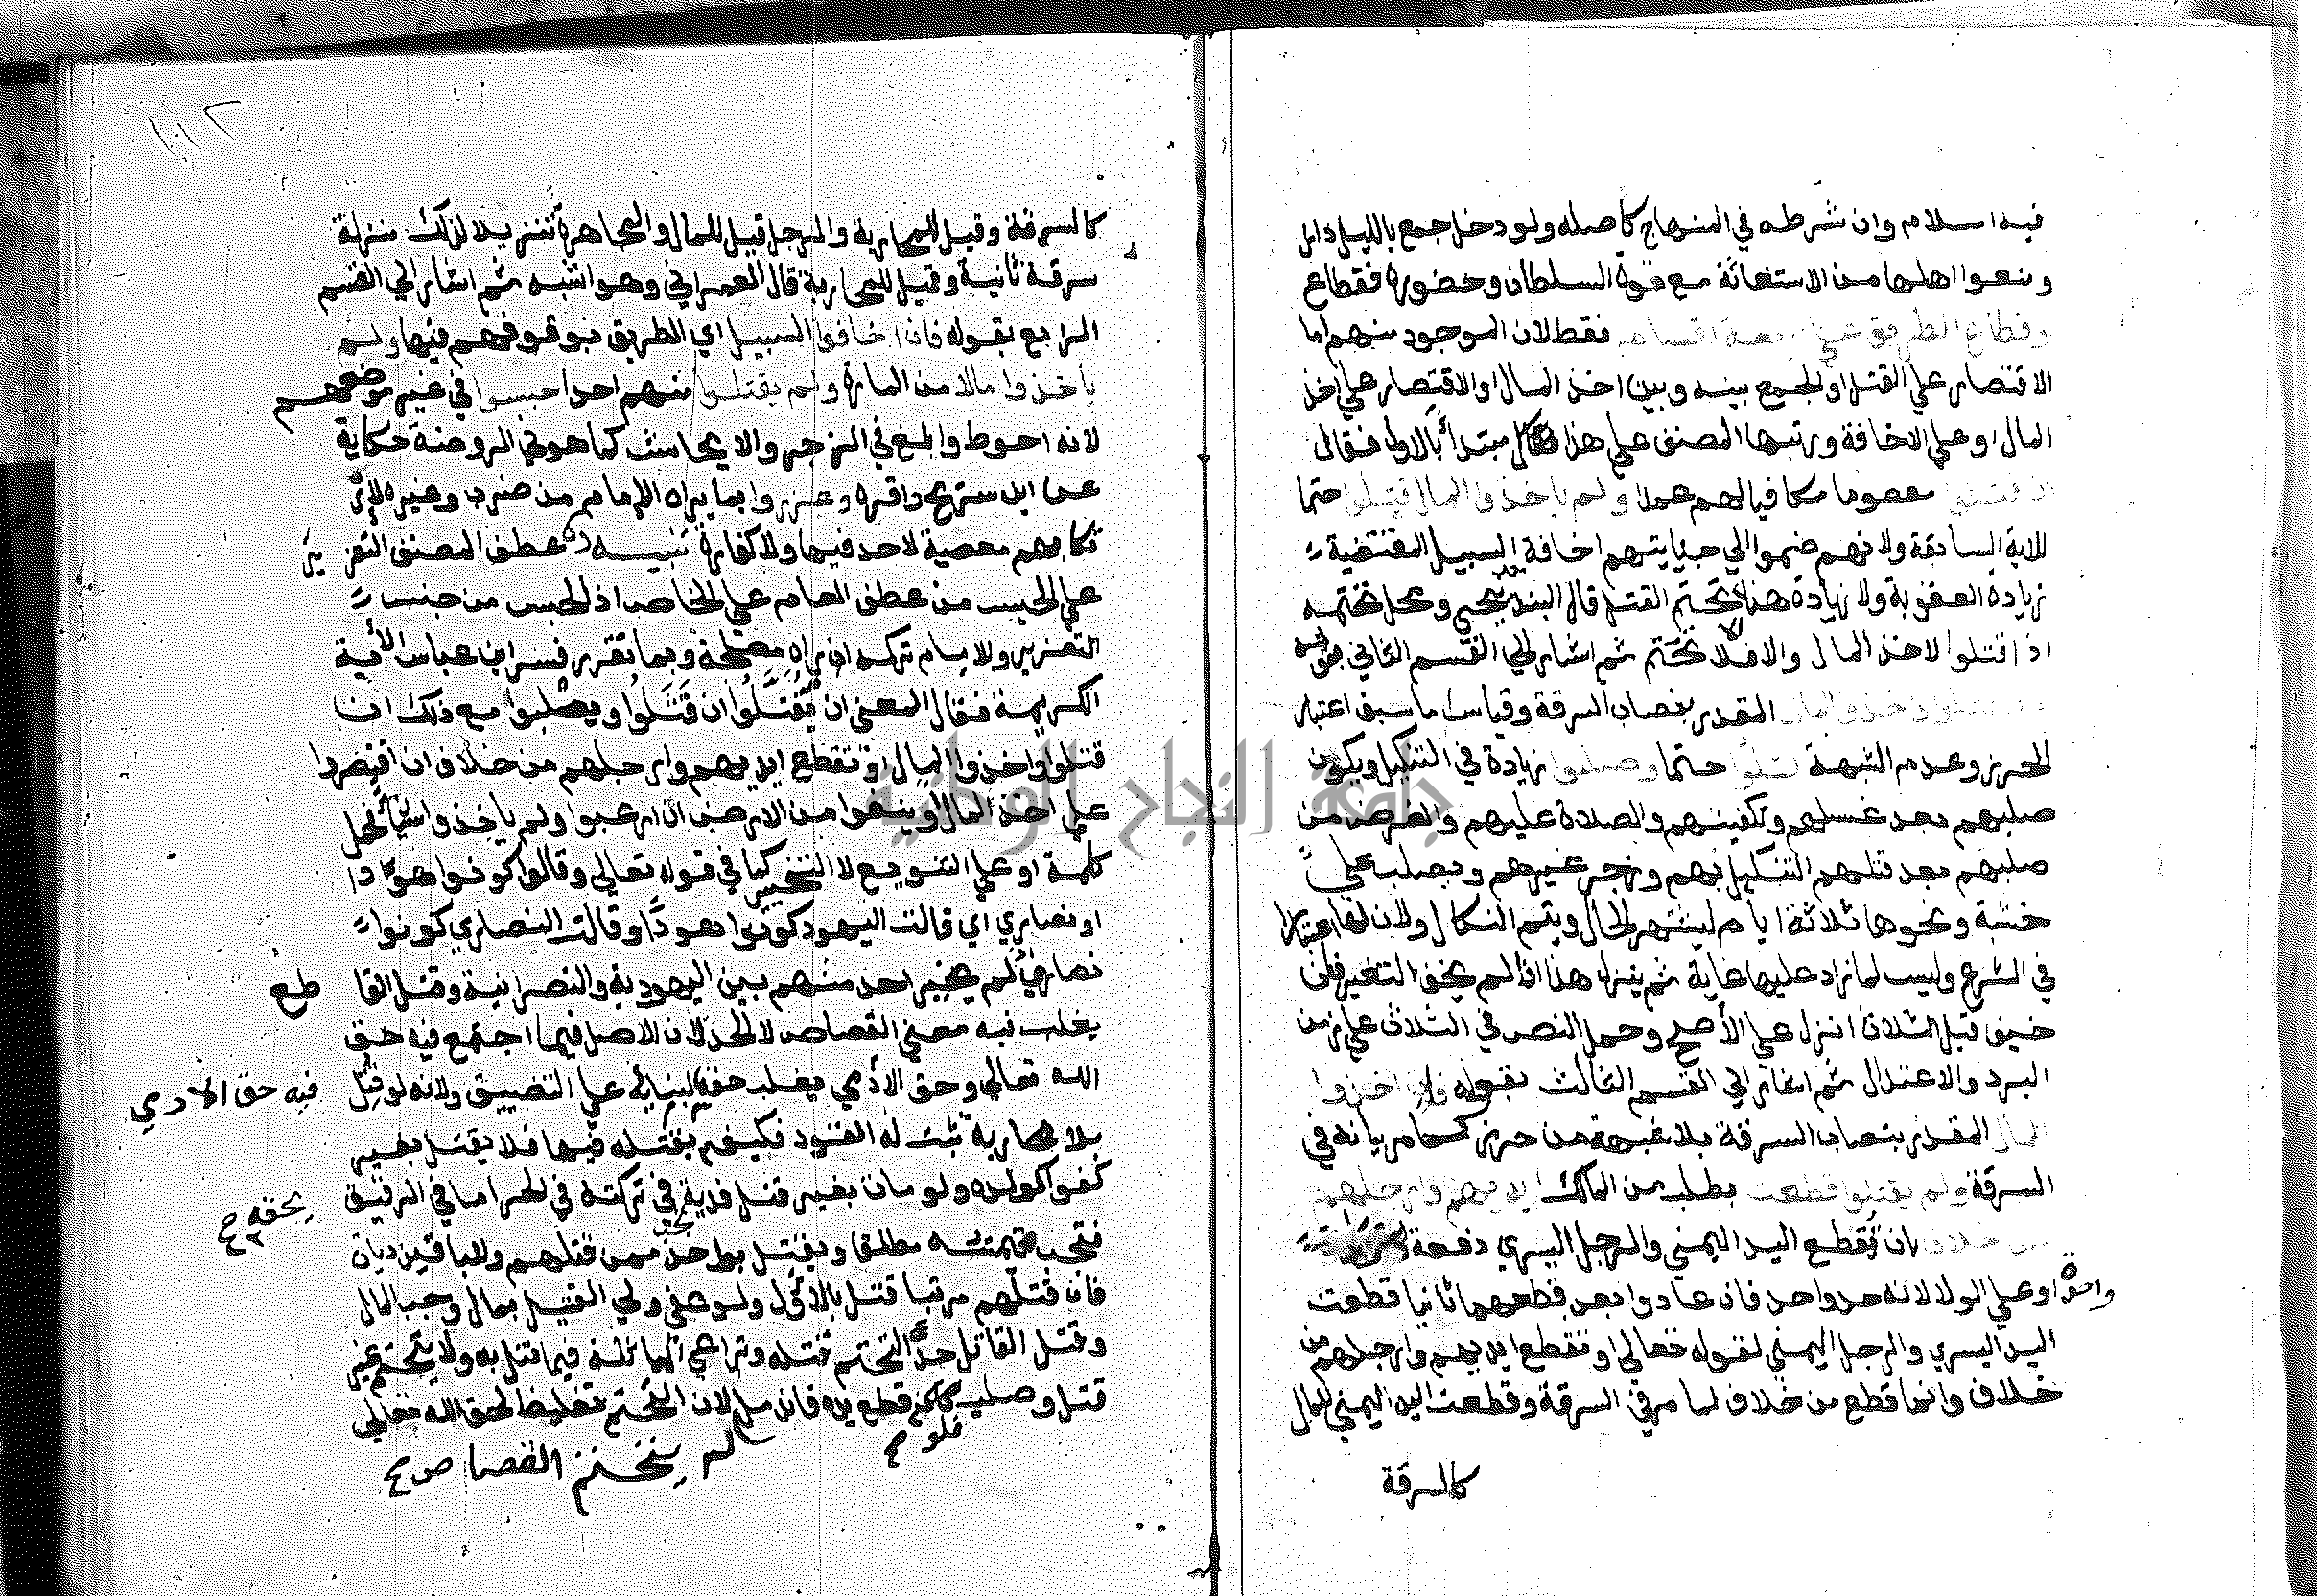 فيه اسلام وان شرطه في المنهاج كاصله ولو دخل جمع بالليل دار
ومنعوا اهلها من الاستغاثة مع قوة السلطان وحضوره فقطاع
وقطاع الطريق علي اربعة اقسام فقط لان الموجود منهم اما
الاقتصار علي القتل او الجمع بينه وبين اخذ المال او الاقتصار علي اخذ
المال او علي الاخافة ورتبها المصنف علي هذا مبتدأ بالاول فقال
ان قتلوا معصوما مكافيا لهم عمدا ولم ياخذوا المال قتلوا حتما
للاية السابقة ولانهم ضموا الي جنايتهم اخافة السبيل المقتضية
زيادة العقوبة ولا زيادة هنا الا تحتم القتل قال البندنيجي ومحل تحتمه
اذا قتلوا لاخذ المال والا فلا تحتم ثم اشار الي القسم الثاني بقوله
فان قتلوا واخذوا المال المقدر بنصاب السرقة وقياس ما سبق اعتبار
الحرز وعدم الشبهة قتلوا حتما وصلبوا زيادة في التنكيل ويكون
صلبهم بعد غسلهم وتكفينهم والصلاة عليهم والغرض من
صلبهم بعد قتلهم التنكيل بهم وزجر غيرهم ويصلب علي
خشبة ونحوها ثلاثة ايام ليشتهر الحال ويتم النكال ولان لها اعتبارا
في الشرع وليس لما زاد عليها غاية ثم ينزل هذا اذا لم يخف التغير فان
خيف قبل الثلاث انزل علي الأصح وحمل النص في الثلاث علي زمن
البرد والاعتدال ثم اشار الي القسم الثالث بقوله فان اخذوا
المال المقدر بنصاب السرقة بلا شبهة من حرز كما مر بيانه في
السرقة ولم يقتلوا قطعت بطلب من المالك ايديهم وارجلهم
من خلاف بان تقطع اليد اليمني والرجل اليسري دفعة
واحدة او علي الولا لانه حد واحد فان عادوا بعد قطعهما ثانيا قطعت
اليد اليسري والرجل اليمني لقوله تعالي او تقطع ايديهم وارجلهم من
خلاف وانما قطع من خلاف لما مر في السرقة وقطعت اليد اليمني للمال
كالسرقة
١٠٢
كالسرقة وقيل للمحاربة والرجل قيل للمال والمجاهرة تنزيلا لذلك منزلة
سرقة ثانية وقيل للمحاربة قال العمراني وهو اشبه ثم اشار الي القسم
الرابع بقوله فان اخافوا السبيل اي الطريق بوقوفهم فيها ولم
ياخذوا مالا من المارة ولم يقتلوا منهم احدا حبسوا في غير موضعهم
لانه احوط وابلغ في الزجر والايحاش كما هو في الروضة حكاية
عن ابن سريج واقره وعزروا بما يراه الامام من ضرب وغيره
تكابهم معصية لا حد فيها ولا كفارة تنبيه عطف المصنف التعزير
علي الحبس من عطف العام علي الخاص اذ الحبس من جنس
التعزير وللامام تركه ان راه مصلحة وبما تقرر فسر ابن عباس الأية
الكريمة فقال المعني ان يقتلوا ان قتلوا ويصلبوا مع ذلك ان
قتلوا واخذوا المال او تقطع ايديهم وارجلهم من خلاف ان اقتصروا
علي اخذ المال او ينفوا من الارض ان ارعبوا ولم ياخذوا شيأ فحمل
كلمة او علي التنويع لا التخيير كما في قوله تعالي وقالوا كونوا هودا
او نصاري اي قالت اليهود كونوا هودا وقالت النصاري كونوا
نصاري إذ لم يخير احد منهم بين اليهودية والنصرانية وقتل القاطع
يغلب فيه معني القصاص لا الحد لان الاصل فيما اجتمع فيه حق
الله تعالي وحق الأدمي يغلب حق الأدمي لبنائه علي التضييق ولانه لو قتل
فيه حق الادمي
بلا محاربة ثبت له القود فكيف يحبط حقه بقتله فيها فلا يقتل بغير
كفو كولده ولو مات بغير قتل فدية في تركته في الحر اما في الرقيق
فتجب قيمته مطلقا ويقتل بواحد ممن قتلهم وللباقين ديات
فان قتلهم مرتبا قتل بالأول ولو عفي ولي القتيل بمال وجب المال
وقتل القاتل حدا لتحتم قتله وتراعي المماثلة فيما قتل به ولا يتحتم غير
قتل وصلب كان قطع يده فاندمل لان التحتم تغليظ لحق الله تعالي
فلو
لم يتحتم القصاص صح